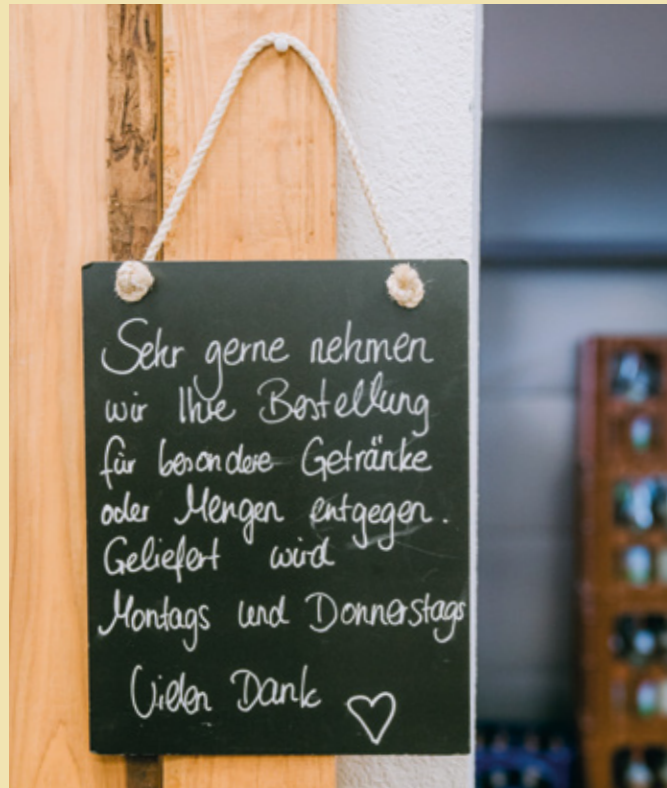 Sehr gerne nehmen
wir Ihre Bestellung
für besondere Getränke
oder Mengen entgegen.
Geliefert wird
Montags und Donnerstags
Vielen Dank